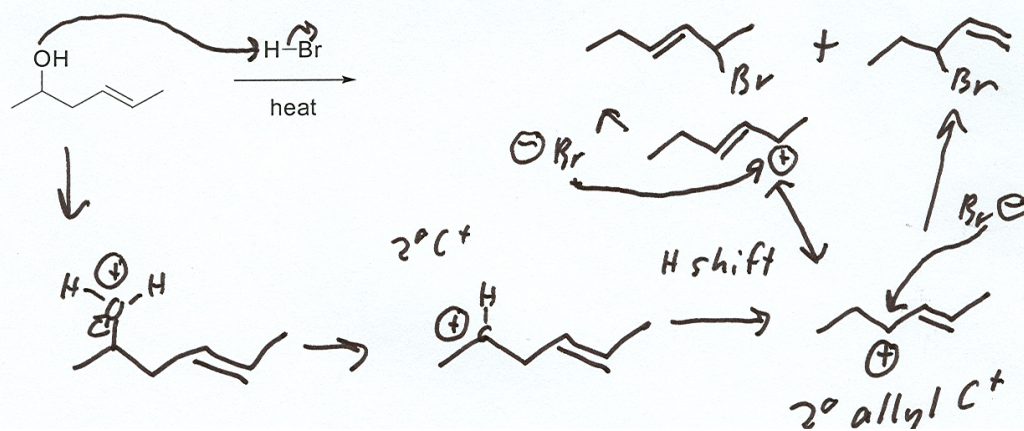 OH
H-Br
heat
Br
+
Br
⊖ Br
⊕
Br ⊖
⊕
H O H
2° C+
H
⊕ C
H shift
⊕
2° allyl C+